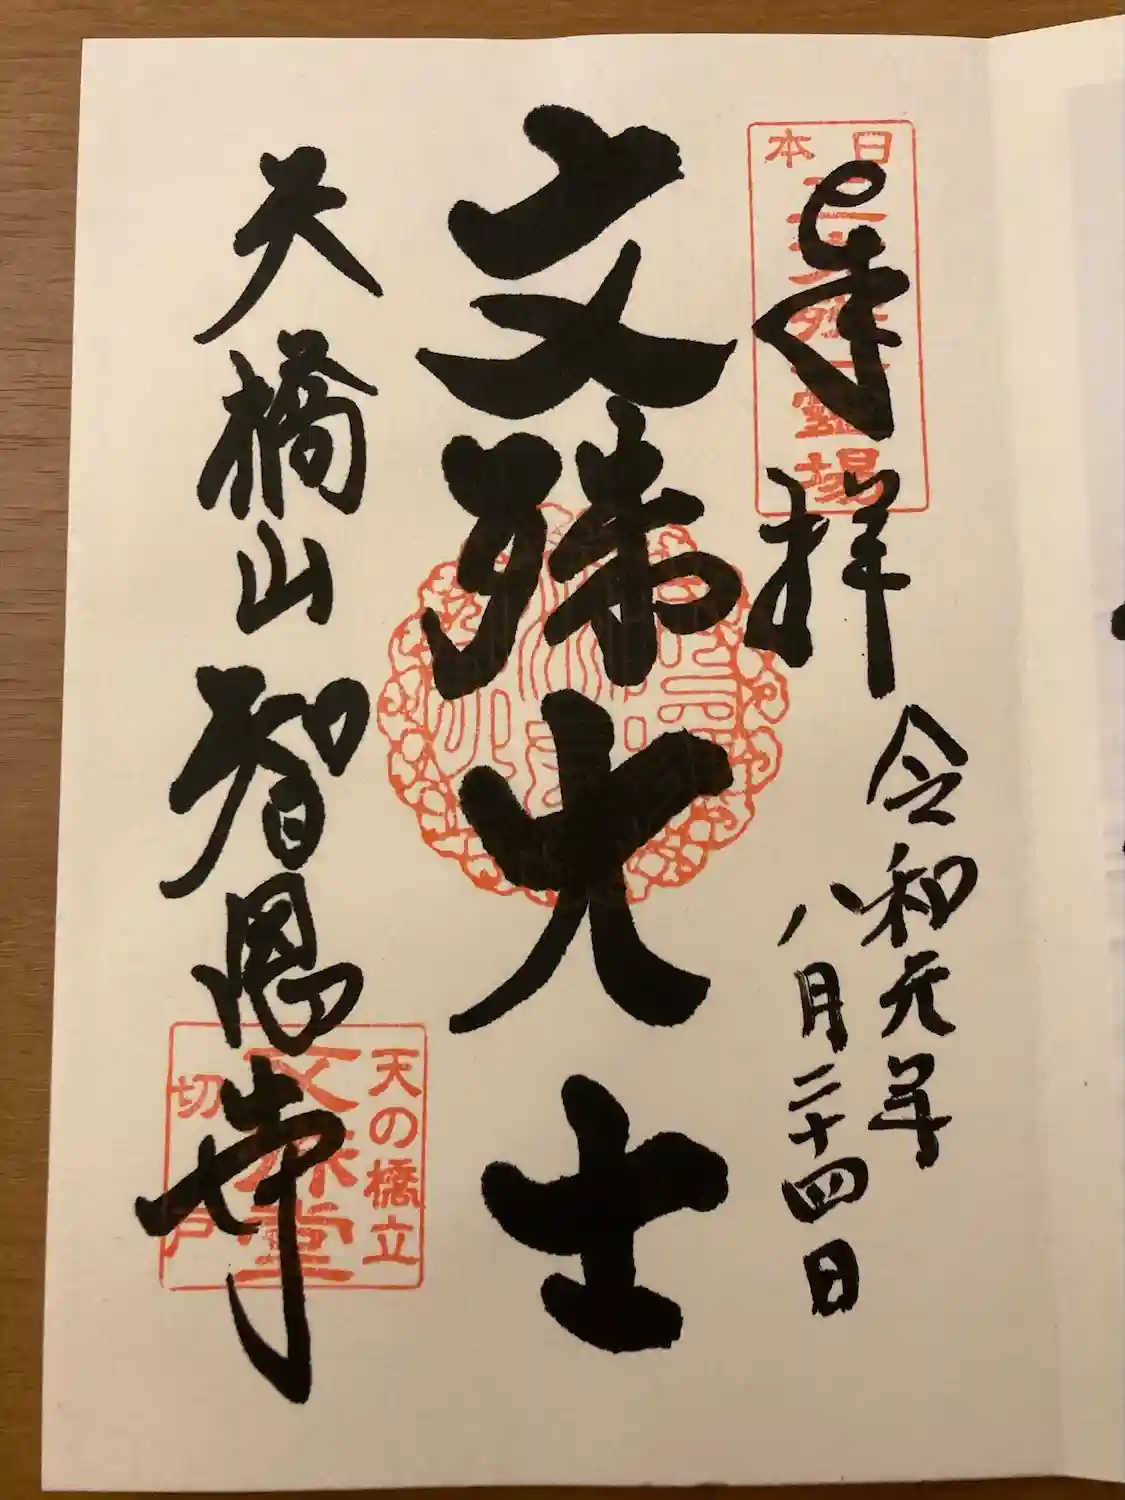 奉拝
日本三文殊一霊場
令和元年
八月二十四日
文殊大士
天橋山智恩寺
天の橋立
文殊堂
切戸